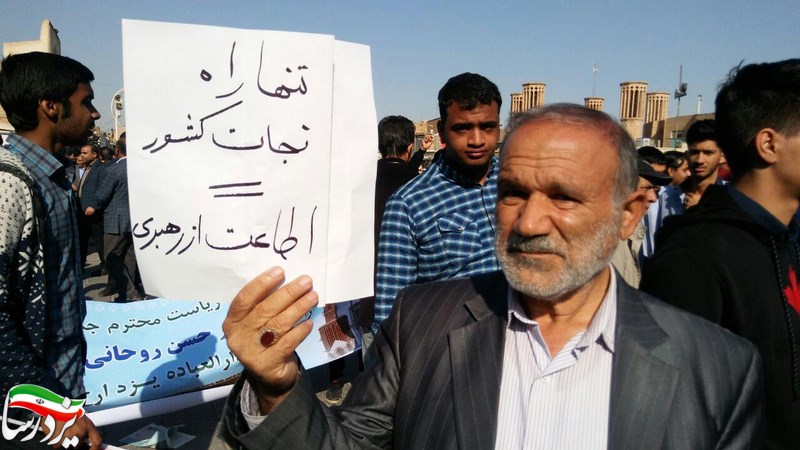 تنها راه
نجات کشور
=
اطاعت از رهبری
ریاست محترم
حسن روحانی
دارالعباده یزد
یزد رسا